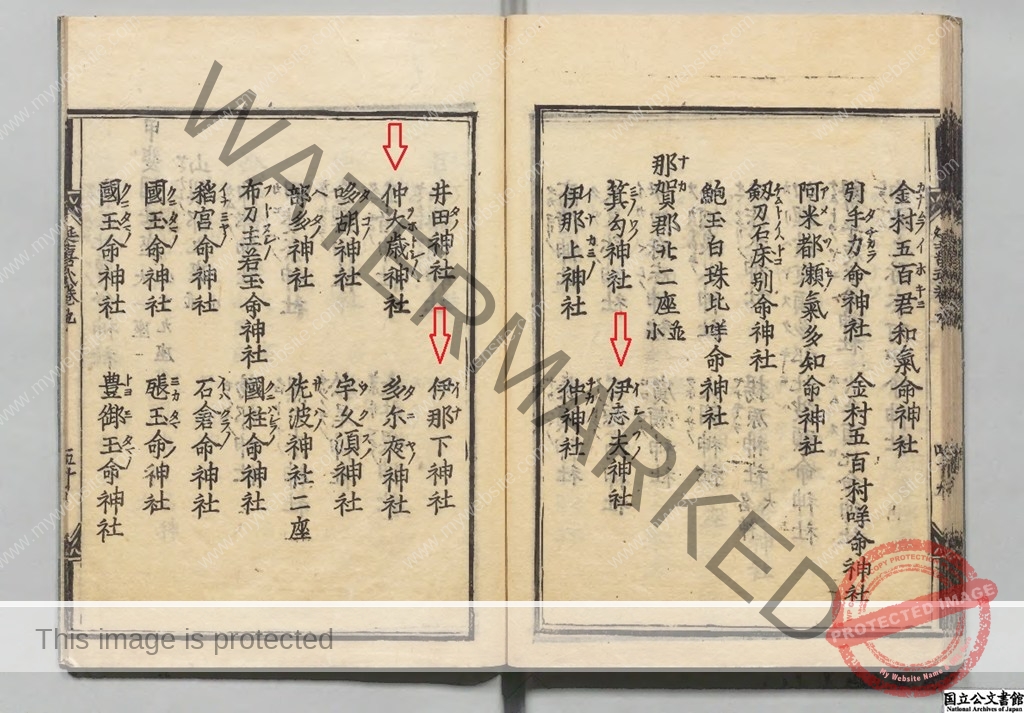 金村五百君和氣命神社
引手力命神社 金村五百村咩命神社
阿米都瀬氣多知命神社
劔刀石床別命神社
鮑玉白珠比咩命神社
那賀郡 二座 並小
箕勾神社 伊志夫神社
伊那上神社 仲神社
井田神社 伊那下神社
仲大歳神社 多尓夜神社
哆胡神社 宇久須神社
部多神社 佐波神社二座
布刀主若玉命神社 國柱命神社
稻宮命神社 石倉命神社
國玉命神社 玉命神社
國玉命神社 豊御玉命神社
延喜式卷九
五十
WATERMARKED
This image is protected
COPY PROTECTION
PROTECTED IMAGE
My Website Name
国立公文書館
National Archives of Japan